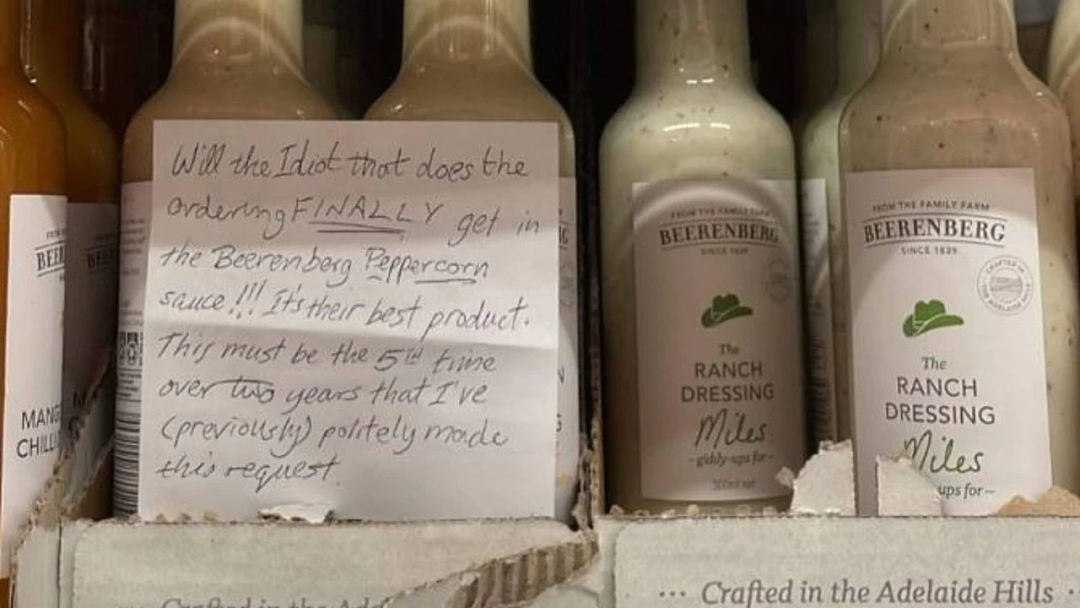 Will the Idiot that does the
ordering FINALLY get in
the Beerenberg Peppercorn
sauce!!! It's their best product.
This must be the 5th time
over two years that I've
(previously) politely made
this request.
BEER
MANG
CHILL
FROM THE FAMILY FARM
BEERENBERG
SINCE 1839
The
RANCH
DRESSING
Miles
- giddy-ups for -
300ml
FROM THE FAMILY FARM
BEERENBERG
SINCE 1839
CRAFTED IN
THE ADELAIDE HILLS
The
RANCH
DRESSING
Miles
ups for -
Crafted in the Ade
··· Crafted in the Adelaide Hills ·